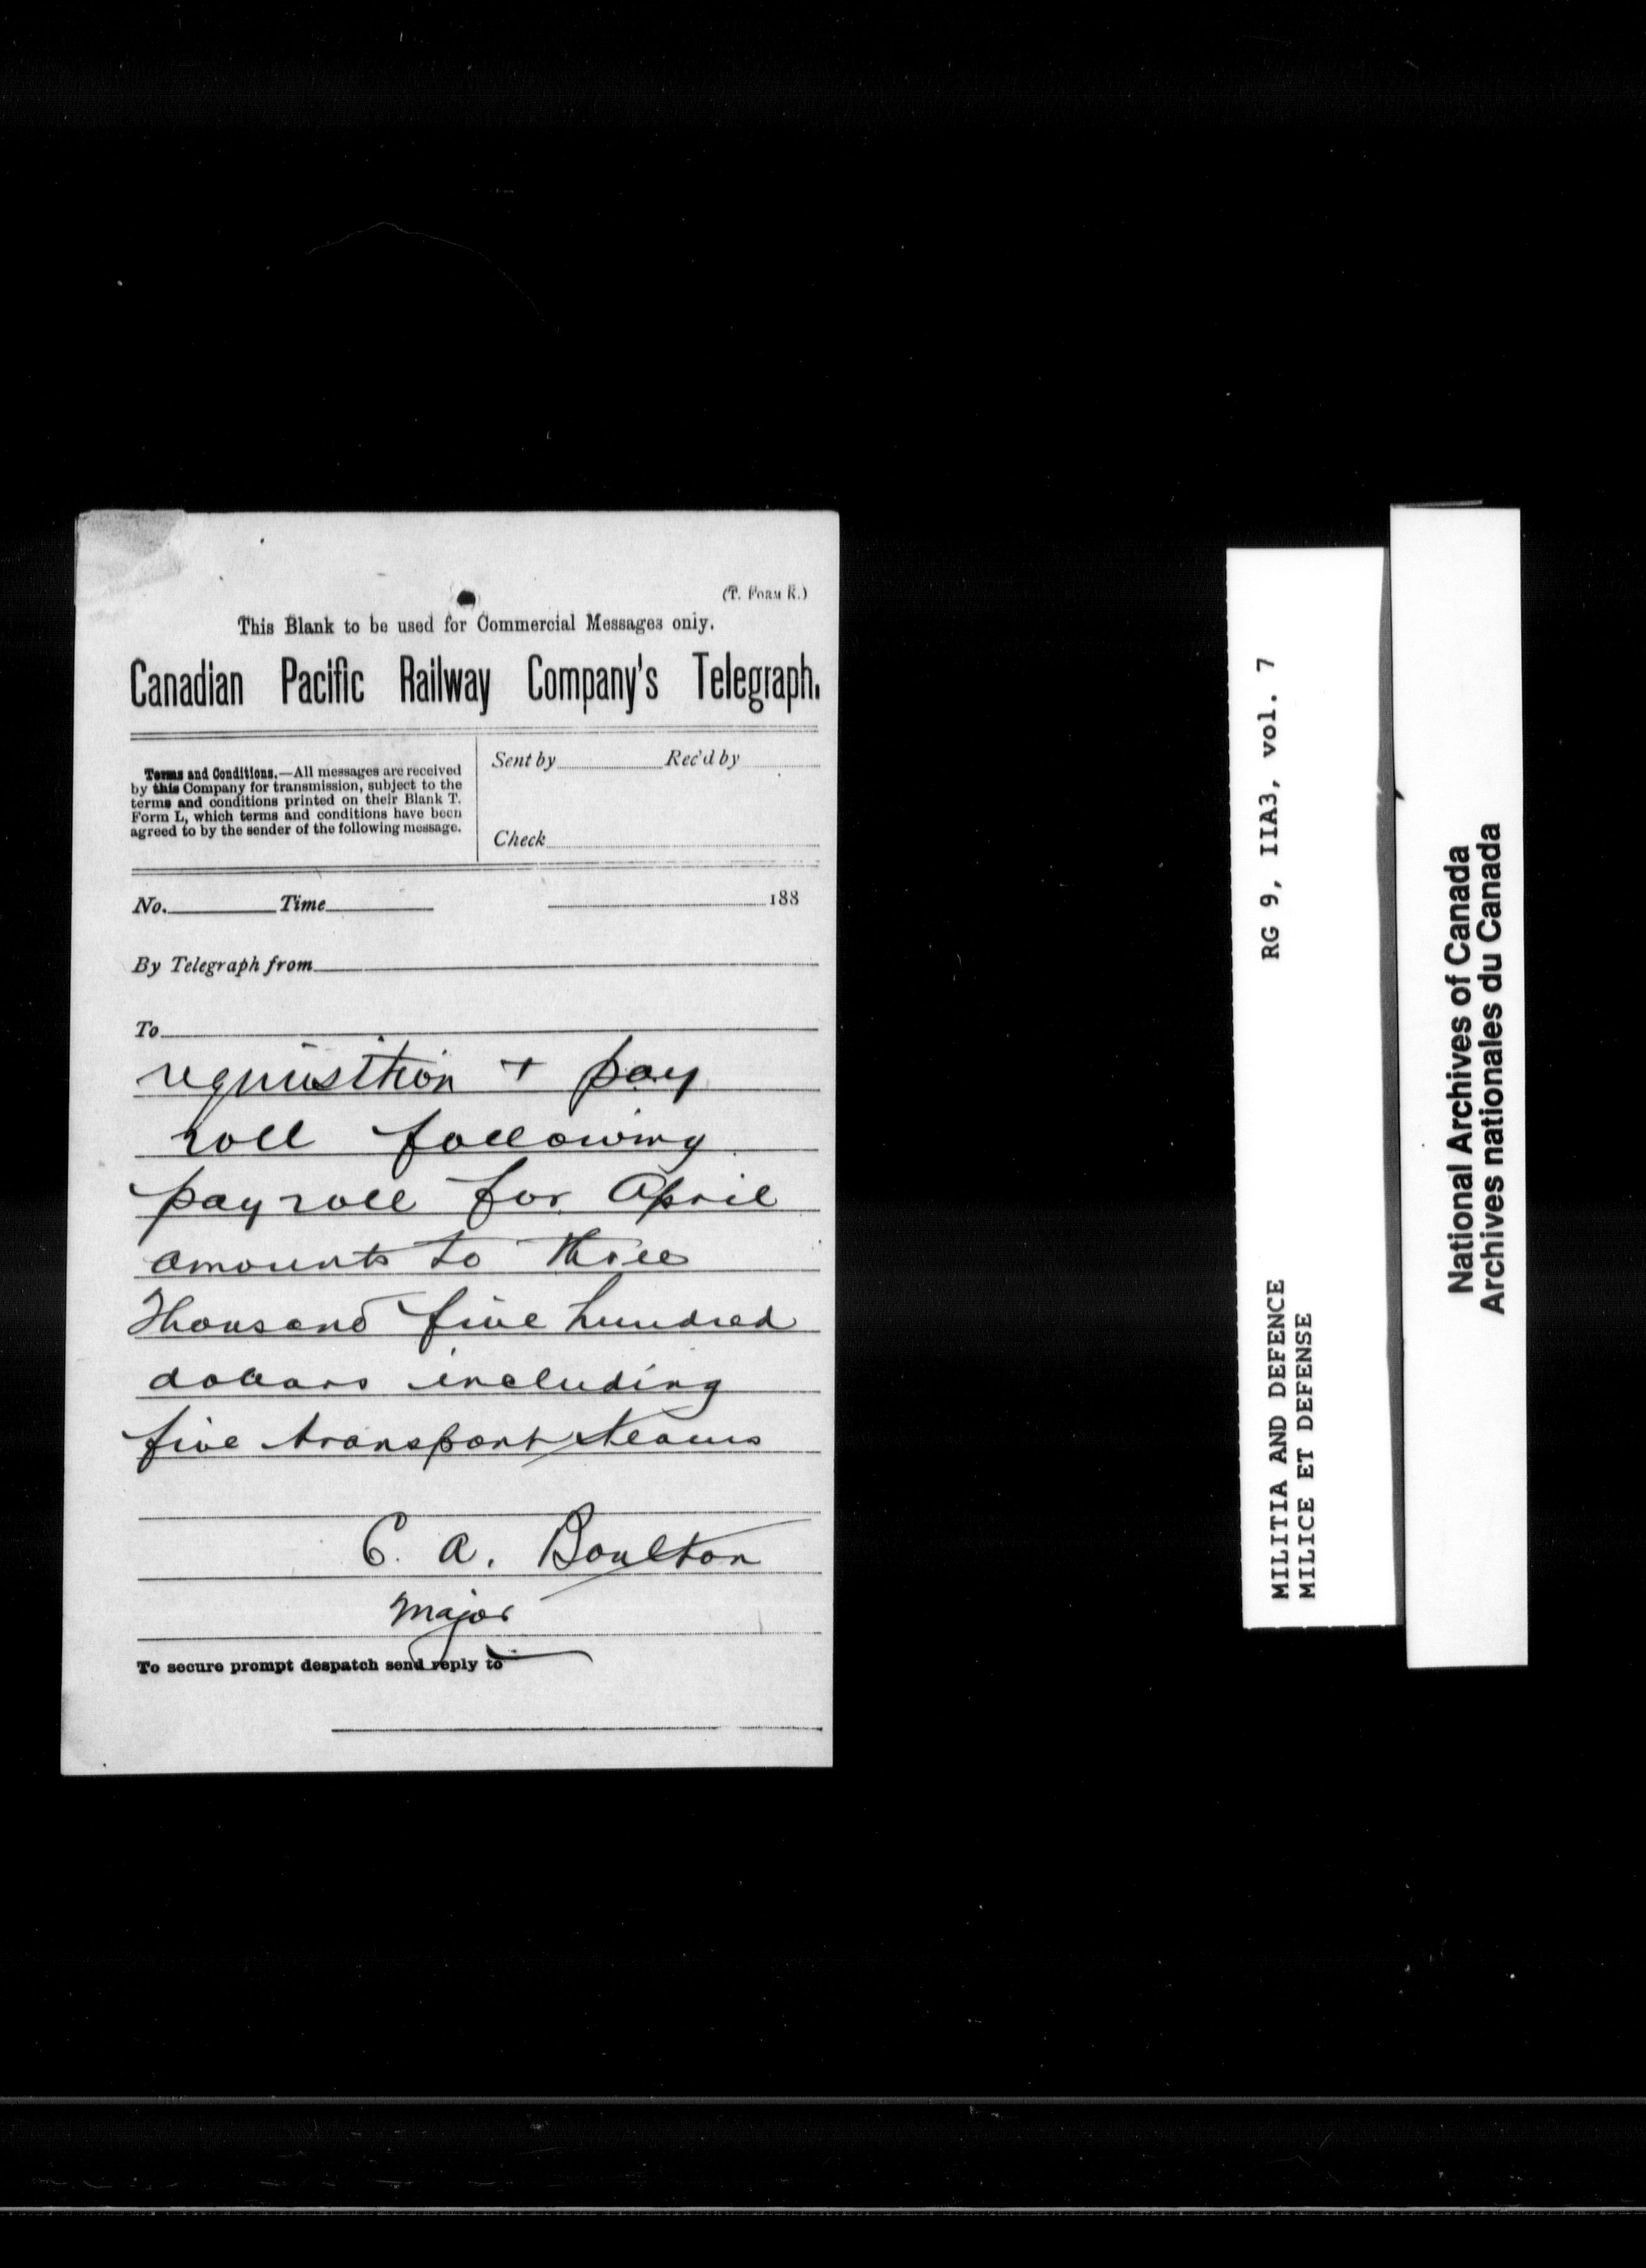 (T. Form K.)
This Blank to be used for Commercial Messages only.
Canadian Pacific Railway Company's Telegraph.
Terms and Conditions.—All messages are received
by this Company for transmission, subject to the
terms and conditions printed on their Blank T.
Form L, which terms and conditions have been
agreed to by the sender of the following message.
Sent by Rec'd by
Check
No. Time 188
By Telegraph from
To
requisition + pay
roll following
pay roll for April
amounts to three
Thousand five hundred
dollars including
five transport teams
C. A. Boulton
Major
To secure prompt despatch send reply to
MILITIA AND DEFENCE RG 9, IIA3, vol. 7
MILICE ET DEFENSE
National Archives of Canada
Archives nationales du Canada